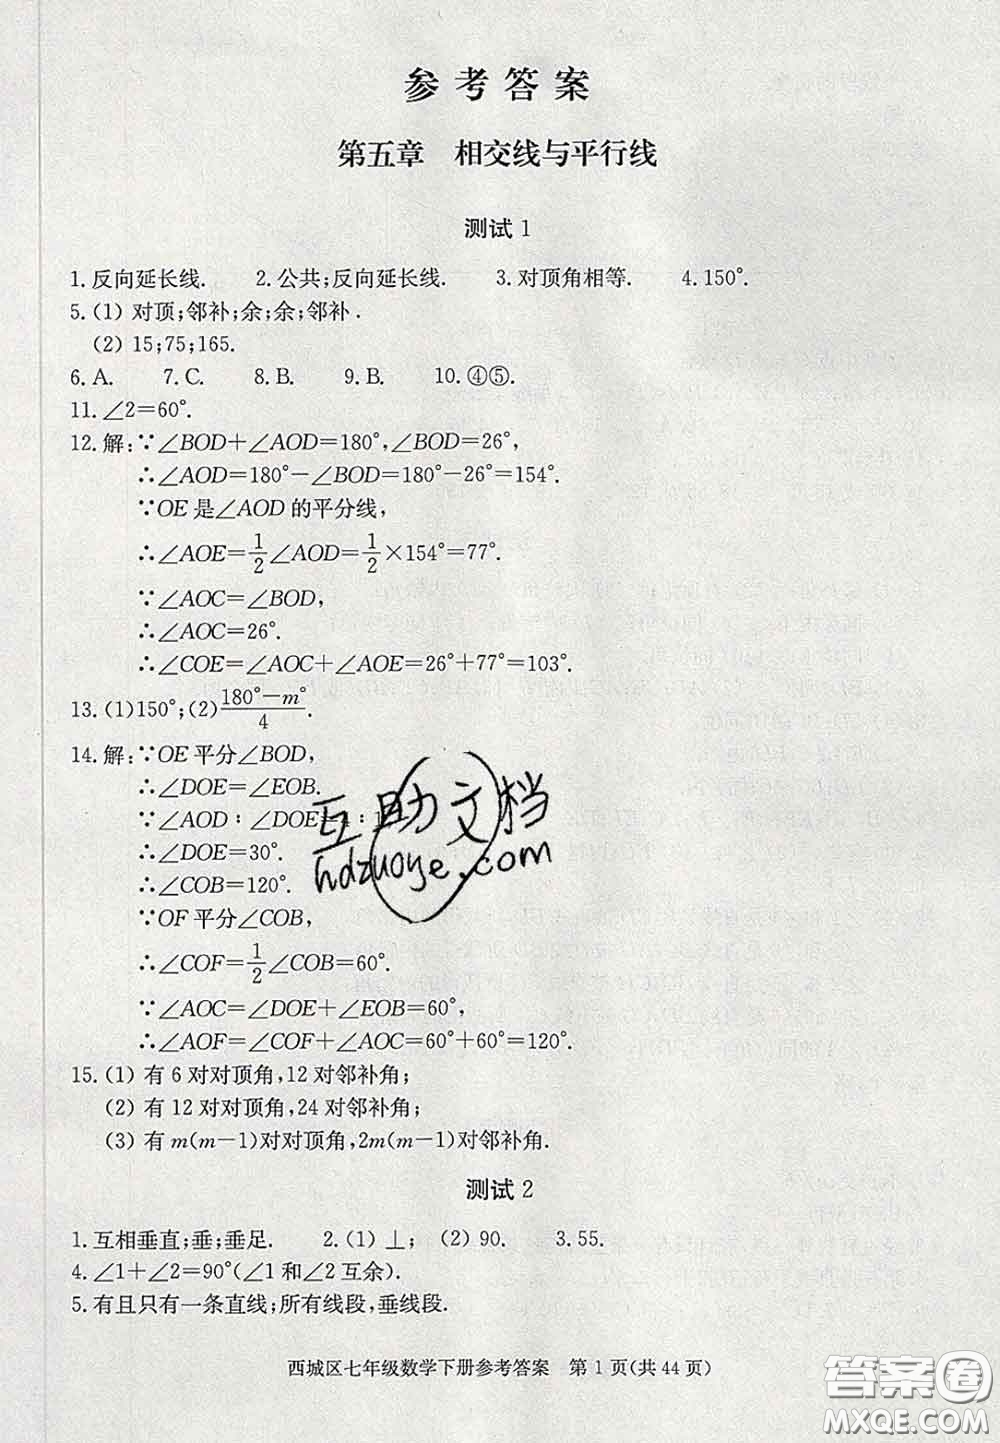 参考答案
第五章 相交线与平行线
测试1
1.反向延长线. 2.公共;反向延长线. 3.对顶角相等. 4.150°.
5.(1) 对顶;邻补;余;余;邻补.
(2) 15;75;165.
6.A. 7.C. 8.B. 9.B. 10.④⑤.
11.∠2=60°.
12.解:∵∠BOD+∠AOD=180°,∠BOD=26°,
∴∠AOD=180°-∠BOD=180°-26°=154°.
∵OE是∠AOD的平分线,
∴∠AOE=1/2∠AOD=1/2×154°=77°.
∵∠AOC=∠BOD,
∴∠AOC=26°.
∴∠COE=∠AOC+∠AOE=26°+77°=103°.
13.(1)150°;(2)(180°-m°)/4.
14.解:∵OE平分∠BOD,
∴∠DOE=∠EOB.
∵∠AOD:∠DOE=4:1
∴∠DOE=30°.
∴∠COB=120°.
∵OF平分∠COB,
∴∠COF=1/2∠COB=60°.
∵∠AOC=∠DOE+∠EOB=60°,
∴∠AOF=∠COF+∠AOC=60°+60°=120°.
15.(1) 有6对对顶角,12对邻补角;
(2) 有12对对顶角,24对邻补角;
(3) 有m(m-1)对对顶角,2m(m-1)对邻补角.
测试2
1.互相垂直;垂;垂足. 2.(1) ⊥; (2) 90. 3.55.
4.∠1+∠2=90°(∠1和∠2互余).
5.有且只有一条直线;所有线段,垂线段.
西城区七年级数学下册参考答案 第1页(共44页)
互助文档
hdzuoye.com
答案圈
MXQE.COM